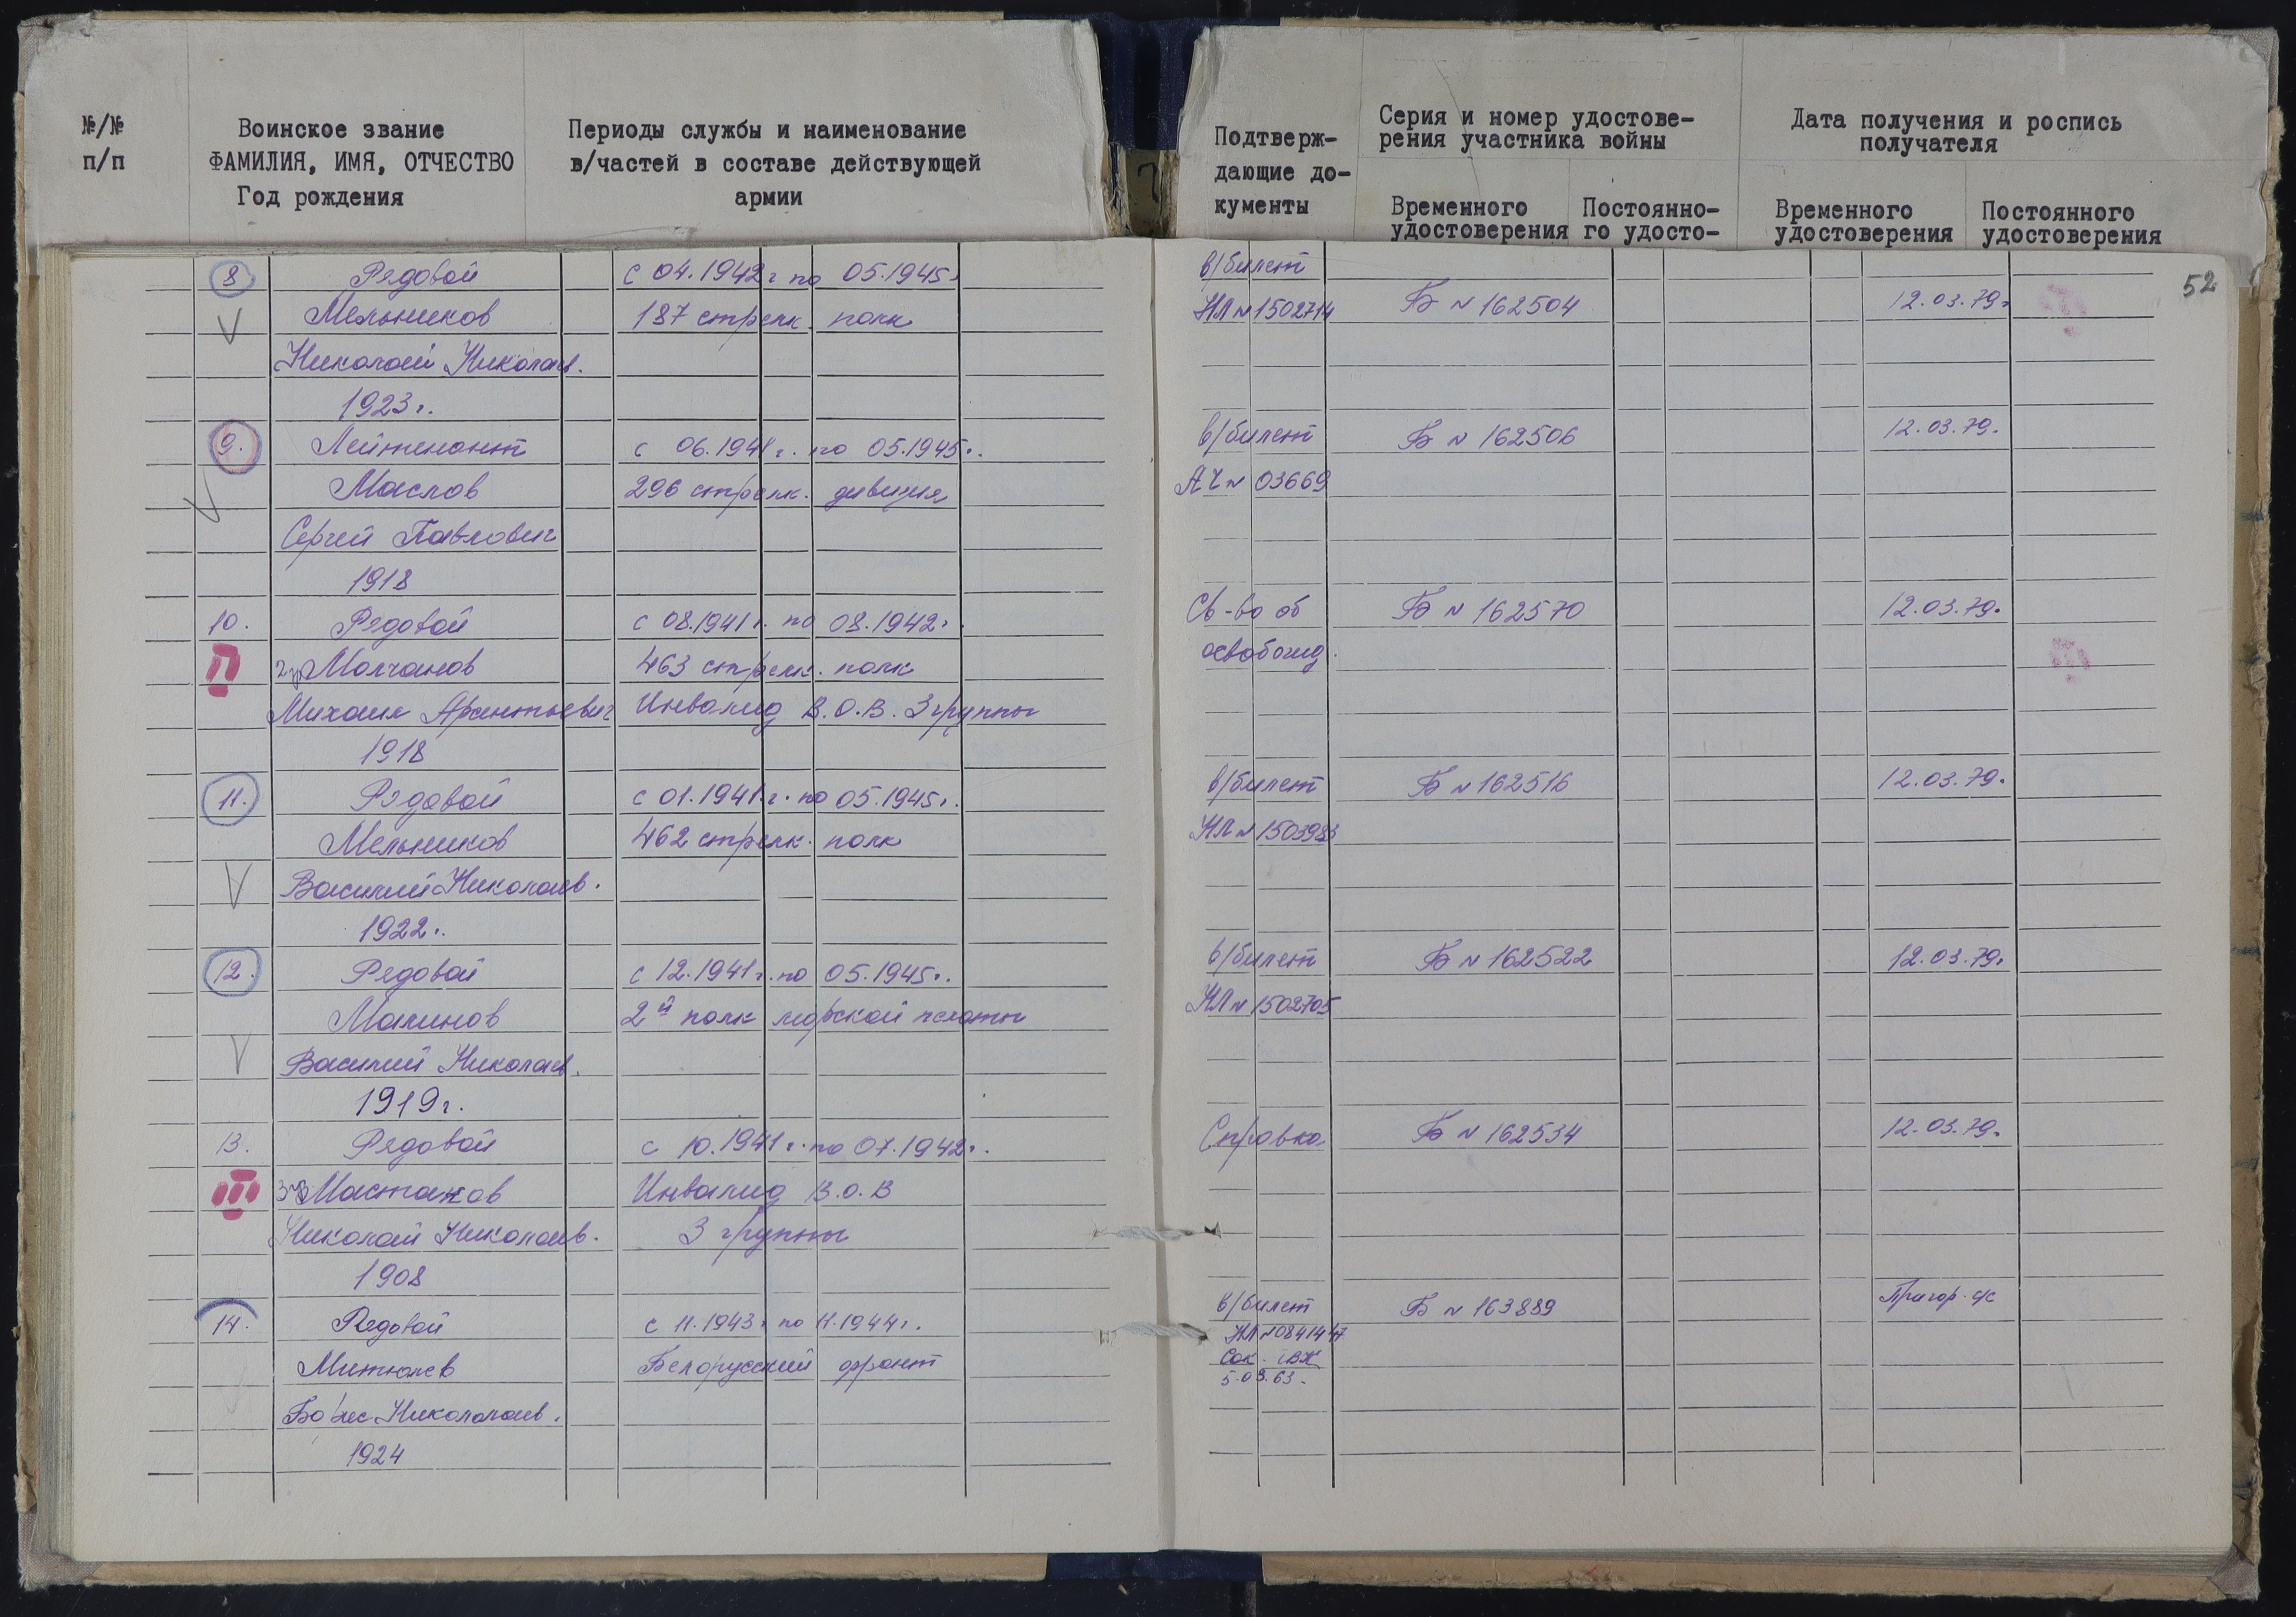 №/№ п/п
Воинское звание ФАМИЛИЯ, ИМЯ, ОТЧЕСТВО Год рождения
Периоды службы и наименование в/частей в составе действующей армии
Подтверж-
дающие до-
кументы
Серия и номер удостове-
рения участника войны
Временного удостоверения
Постоянно-
го удосто-
Дата получения и роспись
получателя
Временного удостоверения
Постоянного удостоверения
52
8 Рядовой с 04.1942г по 05.1945г в/билет
Мельников 187 стрелк. полк НЛ № 1502714 Б № 162504 12.03.79г
Николай Николаев.
1923г.
9. Лейтенант с 06.1941г. по 05.1945г. в/билет Б № 162506 12.03.79.
Маслов 296 стрелк. дивизия АЧ № 03669
Сергей Павлович
1918
10. Рядовой с 08.1941г. по 08.1942г. Св-во об Б № 162570 12.03.79.
II 2гр Молчанов 463 стрелк. полк освобожд.
Михаил Инвалид В.О.В. 3 группы
1918
11. Рядовой с 01.1941.г. по 05.1945г. в/билет Б № 162516 12.03.79.
Мельников 462 стрелк. полк НЛ №
Василий Николаев.
1922г.
12. Рядовой с 12.1941г. по 05.1945г. в/билет Б № 162522 12.03.79.
Малинов 2й полк морской пехоты НЛ № 1502705
Василий Николаев.
1919г.
13. Рядовой с 10.1941г. по 07.1942г. Справка Б № 162534 12.03.79.
III 3гр Мастаков Инвалид В.О.В
Николай Николаев. 3 группы
1908
14. Рядовой с 11.1943г по 11.1944г. в/билет Б № 163889 Пригор. с/с
Митюлев Белорусский фронт НЛ № 0841447
Борис Никололаев.
5.03.63.
1924